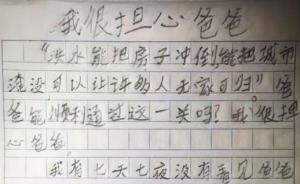 我很担心爸爸
“洪水能把房子冲倒能把城市
淹没可以让许多人无家可归”爸
爸能顺利通过这一关吗?我很担
心爸爸。
我有七天七夜没有看见爸爸